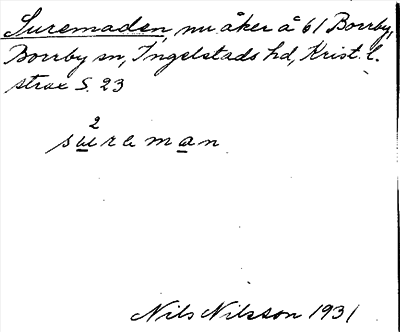 Suremaden, nu åker å 61 Borrby,
Borrby sn, Ingelstads hd, Krist. l.
strax S. 23
2
Nils Nilsson 1931